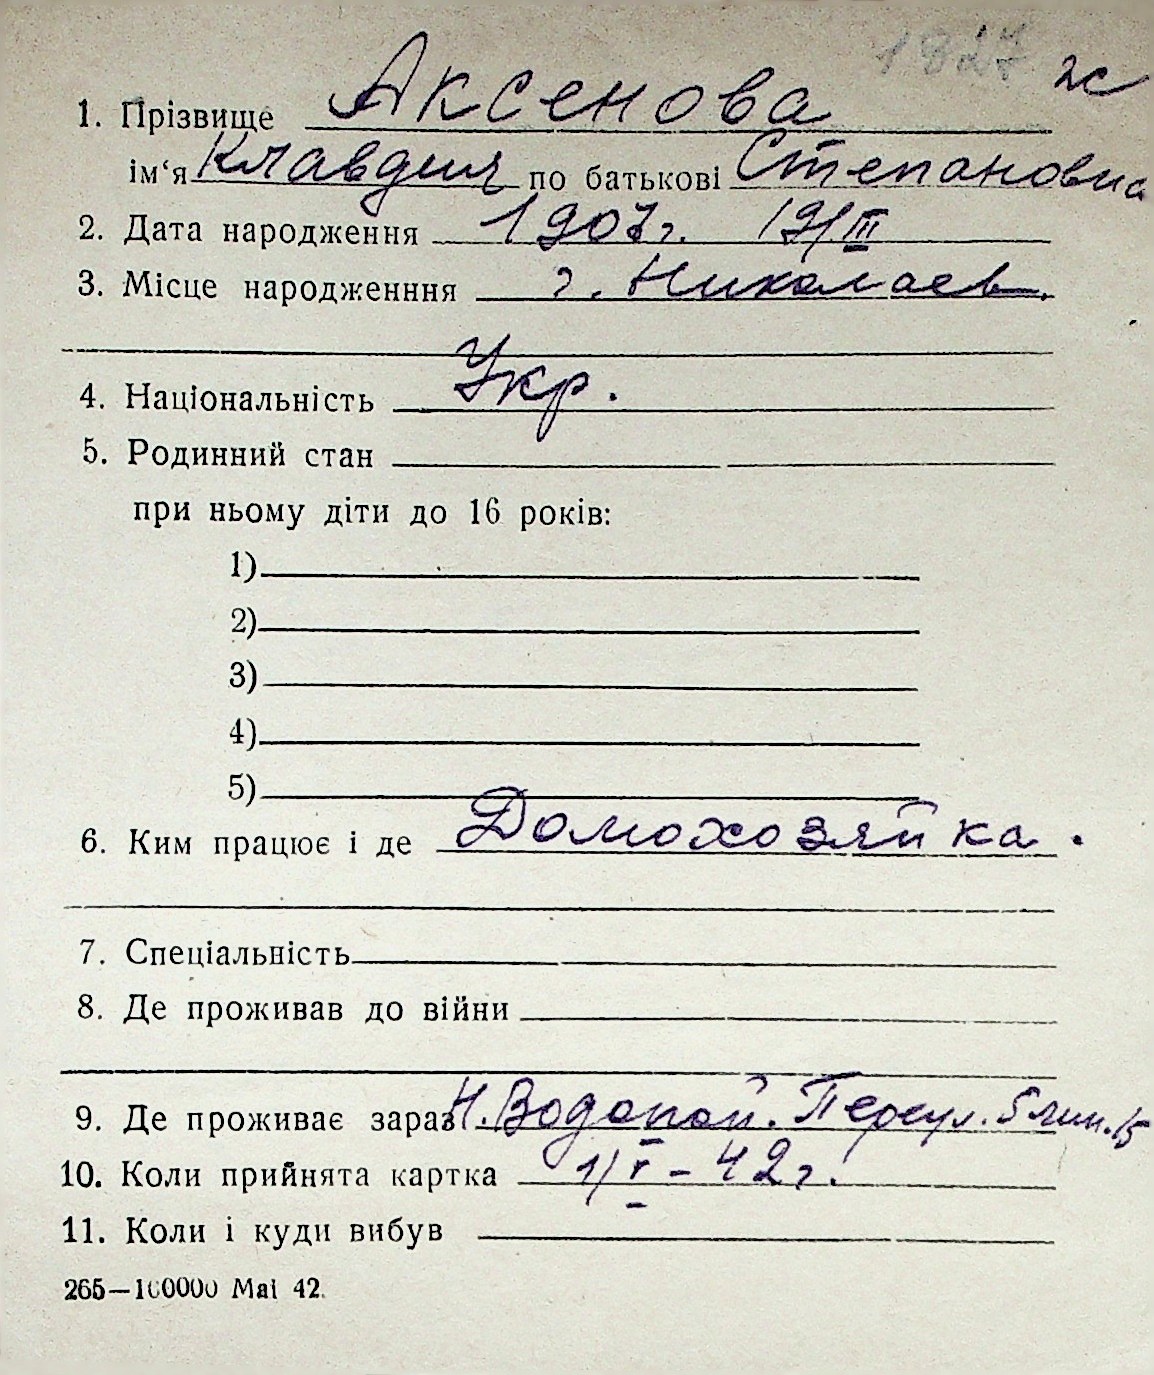 1827 ж
1. Прізвище Аксенова
ім‘я Клавдия по батькові Степановна
2. Дата народження 1907г. 19/III
3. Місце народженння г. Николаев.
4. Національність Укр.
5. Родинний стан
при ньому діти до 16 років:
1)
2)
3)
4)
5)
6. Ким працює і де Домохозяйка.
7. Спеціальність
8. Де проживав до війни
9. Де проживає зараз Н. Водопой. Переул. 5 лин. 15
10. Коли прийнята картка 1/V – 42г.
11. Коли і куди вибув
265—100000 Mai 42.